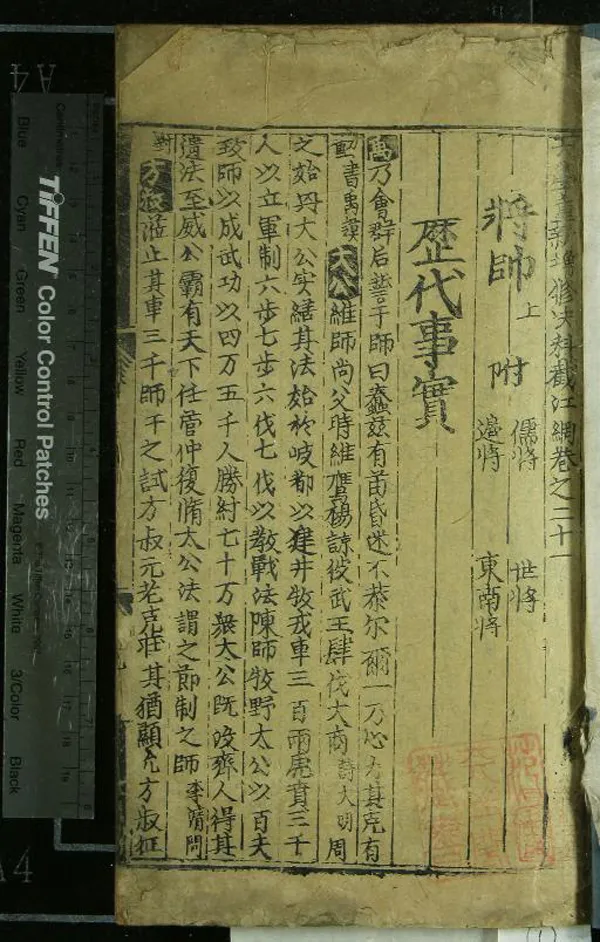 新增修决科截江網卷之二十一
將帥上 附 儒將 世將
邊將 東南將
歴代事實
禹乃會群后誓于師曰蠢兹有苗昏迷不恭尔爾一乃心力其克有
勲書禹謨太公維師尚父時維鷹揚諒彼武王肆伐大商詩大明周
之始與太公实繕其法始於岐都以建井牧戎車三百兩虎賁三千
人以立軍制六步七步六伐七伐以教戰法陳師牧野太公以百夫
致師以成武功以四万五千人勝紂七十万衆太公既没齊人得其
遺法至威公霸有天下任管仲復脩太公法謂之節制之師李靖問
對方叔涖止其車三千師干之試方叔元老克壯其猶顯允方叔征
A4
TIFFEN Color Control Patches
Blue Cyan Green Yellow Red Magenta White 3/Color Black
A4